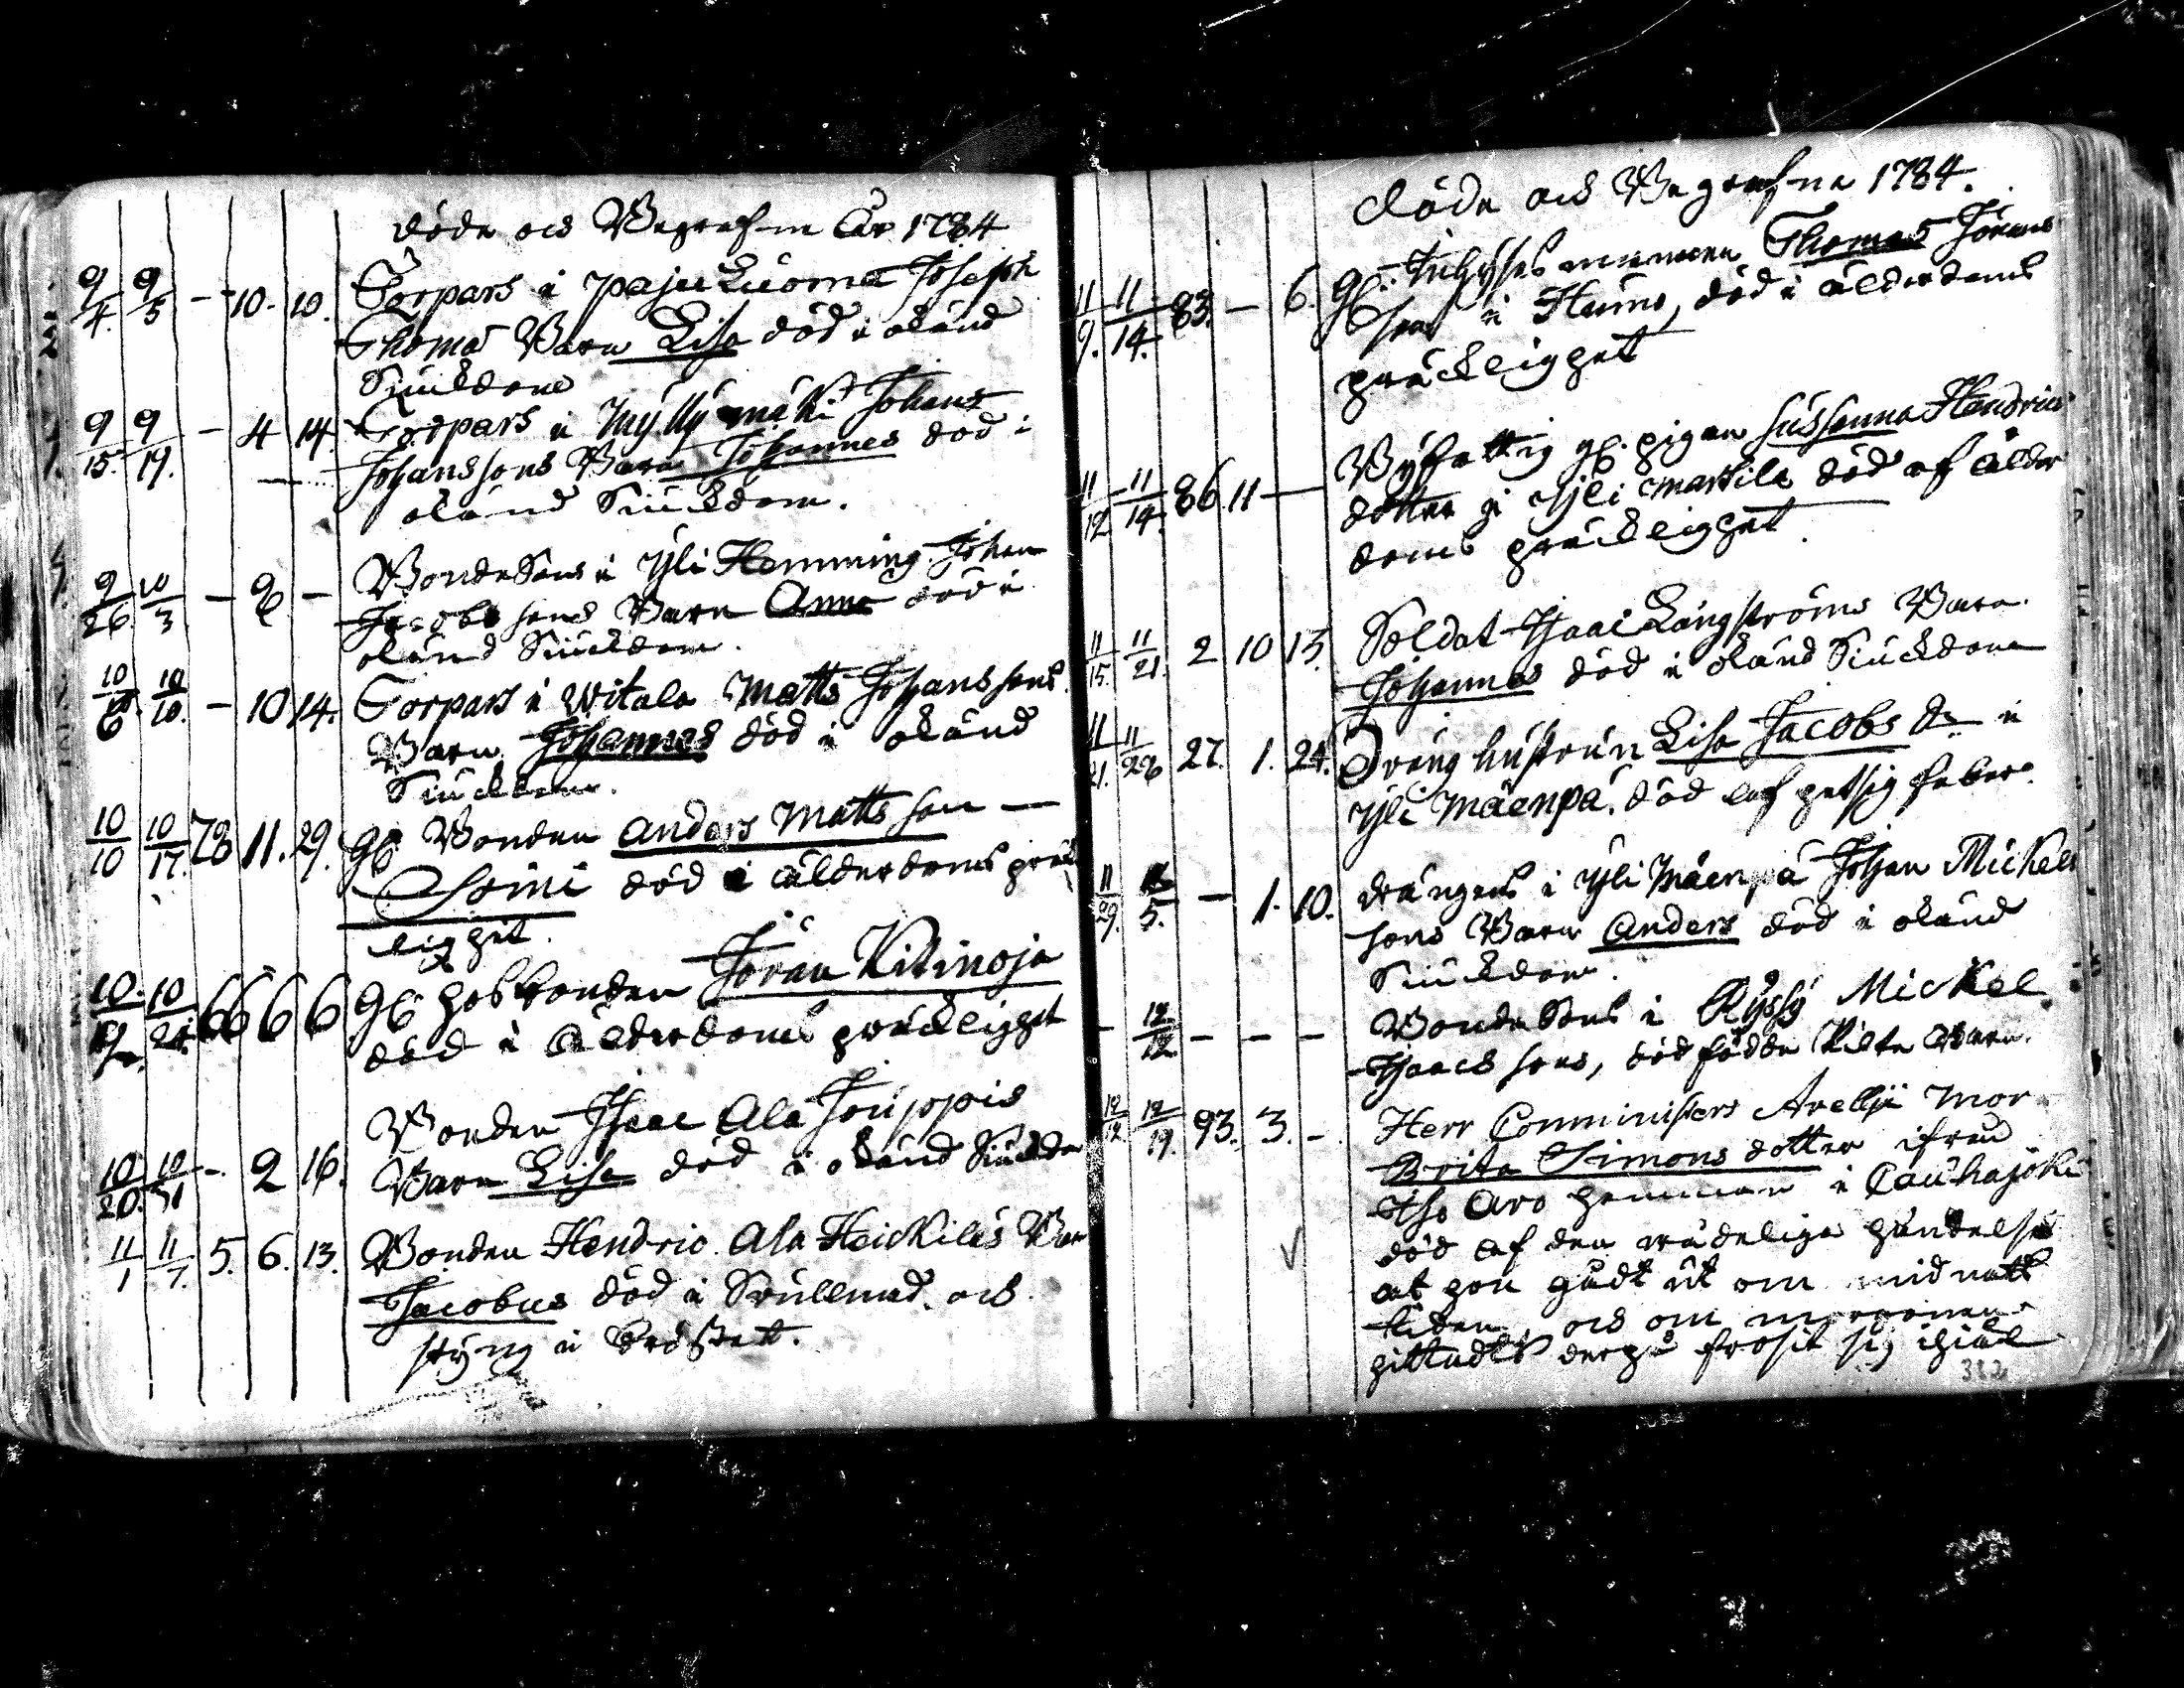 döde och Begrafne År 1784
9/4. 9/5 - 10. 10. Torpars i Pajuluoma Joseph
Thomæ Barn Lisa död i okänd
Siuckdom
9/15. 9/19. - 4 14. Torpars i Myllymäki Johans
Johanssons Barn Johannes död i
okänd Siuckdom.
9/26. 10/3 - 9 - Bondesons i Yli Hemming Johan
Jacobssons Barn Anna död i
okänd Siuckdom.
10/6 10/10. - 10 14. Torpars i Witala Matts Johanssons
Barn Johannes död i okänd
Siuckdom.
10/10 10/17. 78 11. 29. gl Bonden Anders Mattsson
död i ålderdoms bräck
lighet.
10. 10/24. 66 6 6 gl husbonden Jöran Kitinoja
död i Ålderdoms bräcklighet
Bonden Isaac Ala Jouppis
10/20. 10/31 - 2 16. Barn Lisa död i okänd Siuckdom
11/1 11/7. 5. 6. 13. Bonden Hendric Ala Heickiläs Barn
Jacobus död i Swullnad och
styng i Bröstet.
döde och Begrafne 1784.
11/9. 11/14. 83. - 6. gl. Inhyses mannen Thomas Jörans
son i Heimo, död i ålderdoms
bräcklighet
11/12 11/14. 86 11 - Uthfattig gl. pigan Sussanna Hendrics
dotter i Yli Markila död af ålder
doms bräcklighet.
11/15. 11/21. 2 10 13. Soldat Isaac Långströms Barn
Johannes död i okänd Siuckdom
11/21. 11/28 27. 1. 24. Dräng hustrun Lisa Jacobs dr i
Yli Mäenpä. död af hetsig feber.
11/29. 12/5. - 1. 10. drängens i Yli Mäenpä Johan Mickels
sons Barn Anders död i okänd
Siuckdom.
- 12/12 - - - Bondesons i Ryssy Mickel
Isaacs sons, dödfödda Barn.
12/12 12/19. 93. 3. - Herr Comministers Arellii Mor
Brita Simons dotter ifrån
Iso Aro hemman i Cauhajoki
död af den wådeliga händelse
at hon gådt ut om midnatts
tiden, och om morgonen
hittades derpå frosit sig ihjäl
382